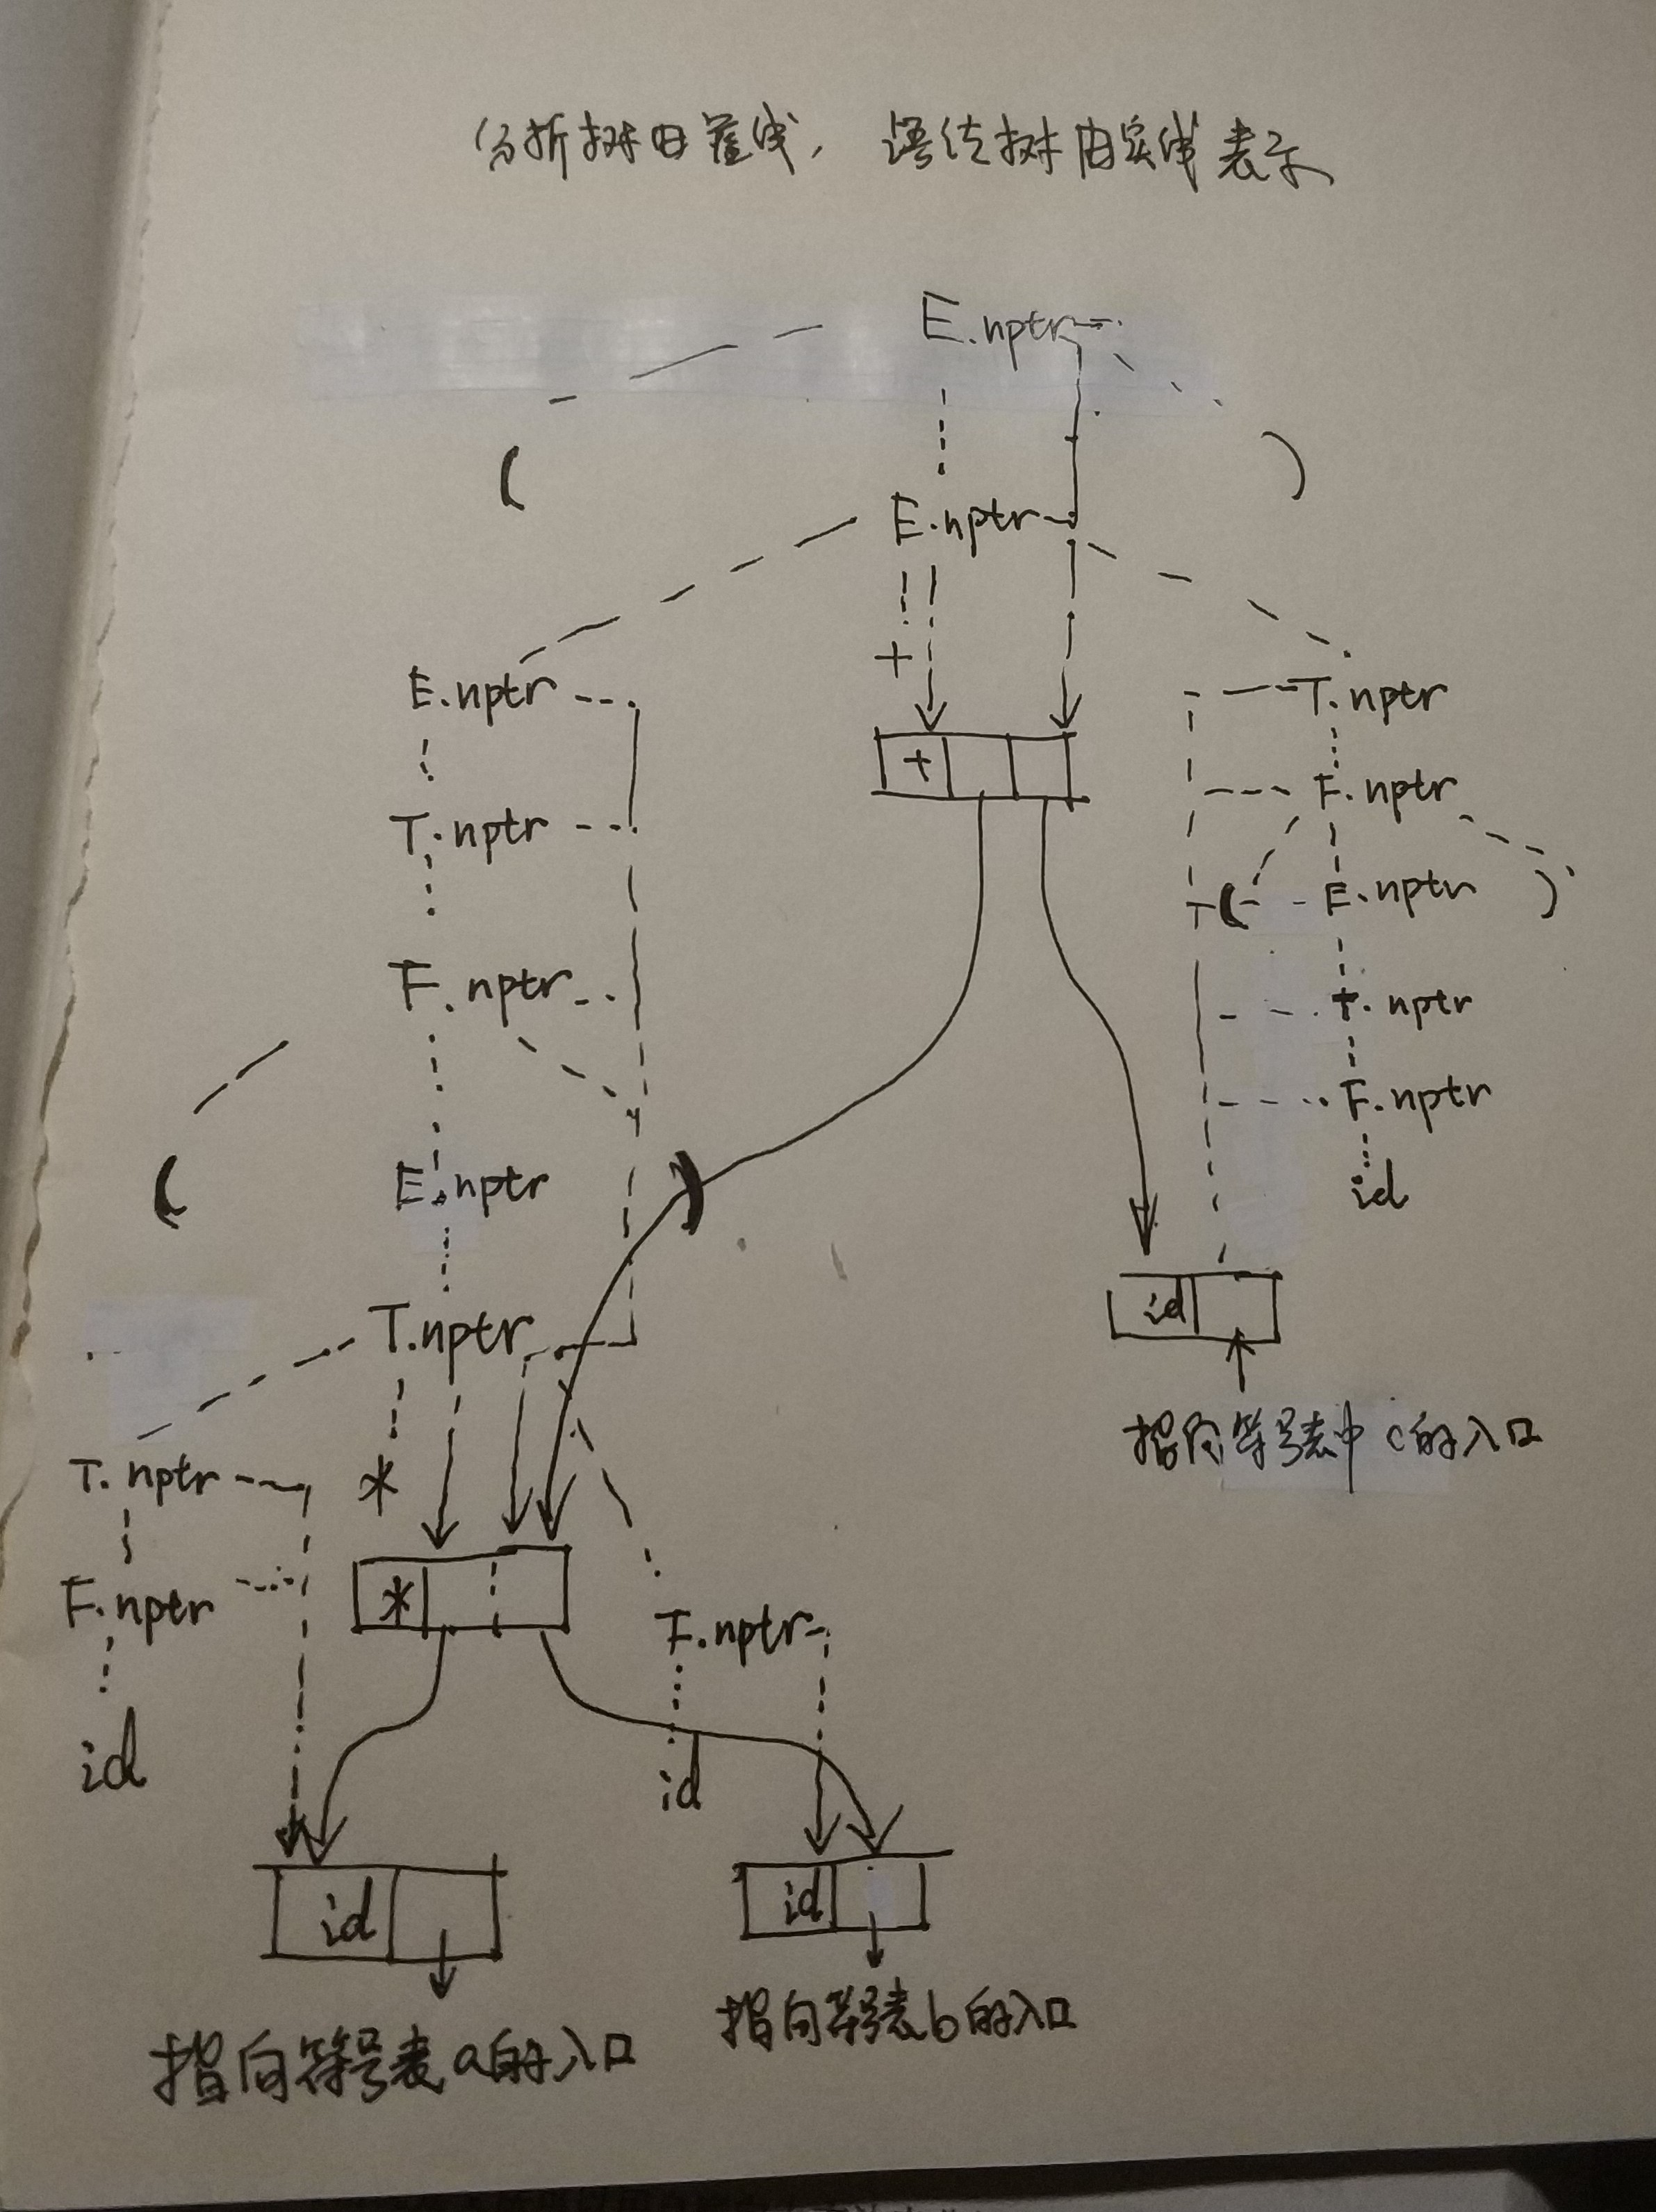 分析树由虚线, 语法树由实线表示
E.nptr
( E.nptr )
E.nptr + T.nptr
T.nptr + F.nptr
( E.nptr )
F.nptr T.nptr
F.nptr
( E.nptr ) id
T.nptr id
指向符号表中c的入口
T.nptr *
F.nptr * F.nptr
id id
id id
指向符号表b的入口
指向符号表a的入口